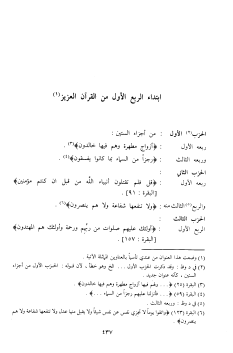 ابتداء الربع الأول من القرآن العزيز (١)
الحزب (٢) الأول : من أجزاء الستين :
ربعه الأول : ﴿أزواج مطهرة وهم فيها خالدون﴾ (٣) .
وربعه الثالث : ﴿رجزاً من السماء بما كانوا يفسقون﴾ (٤) .
الحزب الثاني
ربعه الأول : ﴿قل فلم تقتلون أنبياء الله من قبل ان كنتم مؤمنين﴾
[البقرة : ٩١] .
والربع (٥) الثالث منه : ﴿ولا تنفعها شفاعة ولا هم ينصرون﴾ (٦) .
الحزب الثالث :
الربع الأول : ﴿أولئك عليهم صلوات من ربهم ورحمة وأولئك هم المهتدون﴾
[البقرة : ١٥٧] .
(١) وضعت هذا العنوان من عندي تأسياً
(٢) في د وظ : وقد ذكرت الحزب الأول . . . الحزب الأول من أجزاء
الستين ،
(٣) البقرة (٢٥) ﴿. . . ولهم فيها أزواج مطهرة وهم فيها خالدون﴾ .
(٤) البقرة (٥٩) ﴿. . . فأنزلنا عليهم رجزاً من السماء . . .﴾ .
(٥) في د وظ :
(٦) البقرة (١٢٣) ﴿واتقوا يوماً لا تجزي نفس عن نفس شيئاً ولا يقبل منها عدل ولا تنفعها شفاعة ولا هم
ينصرون﴾ .
٤٣٧